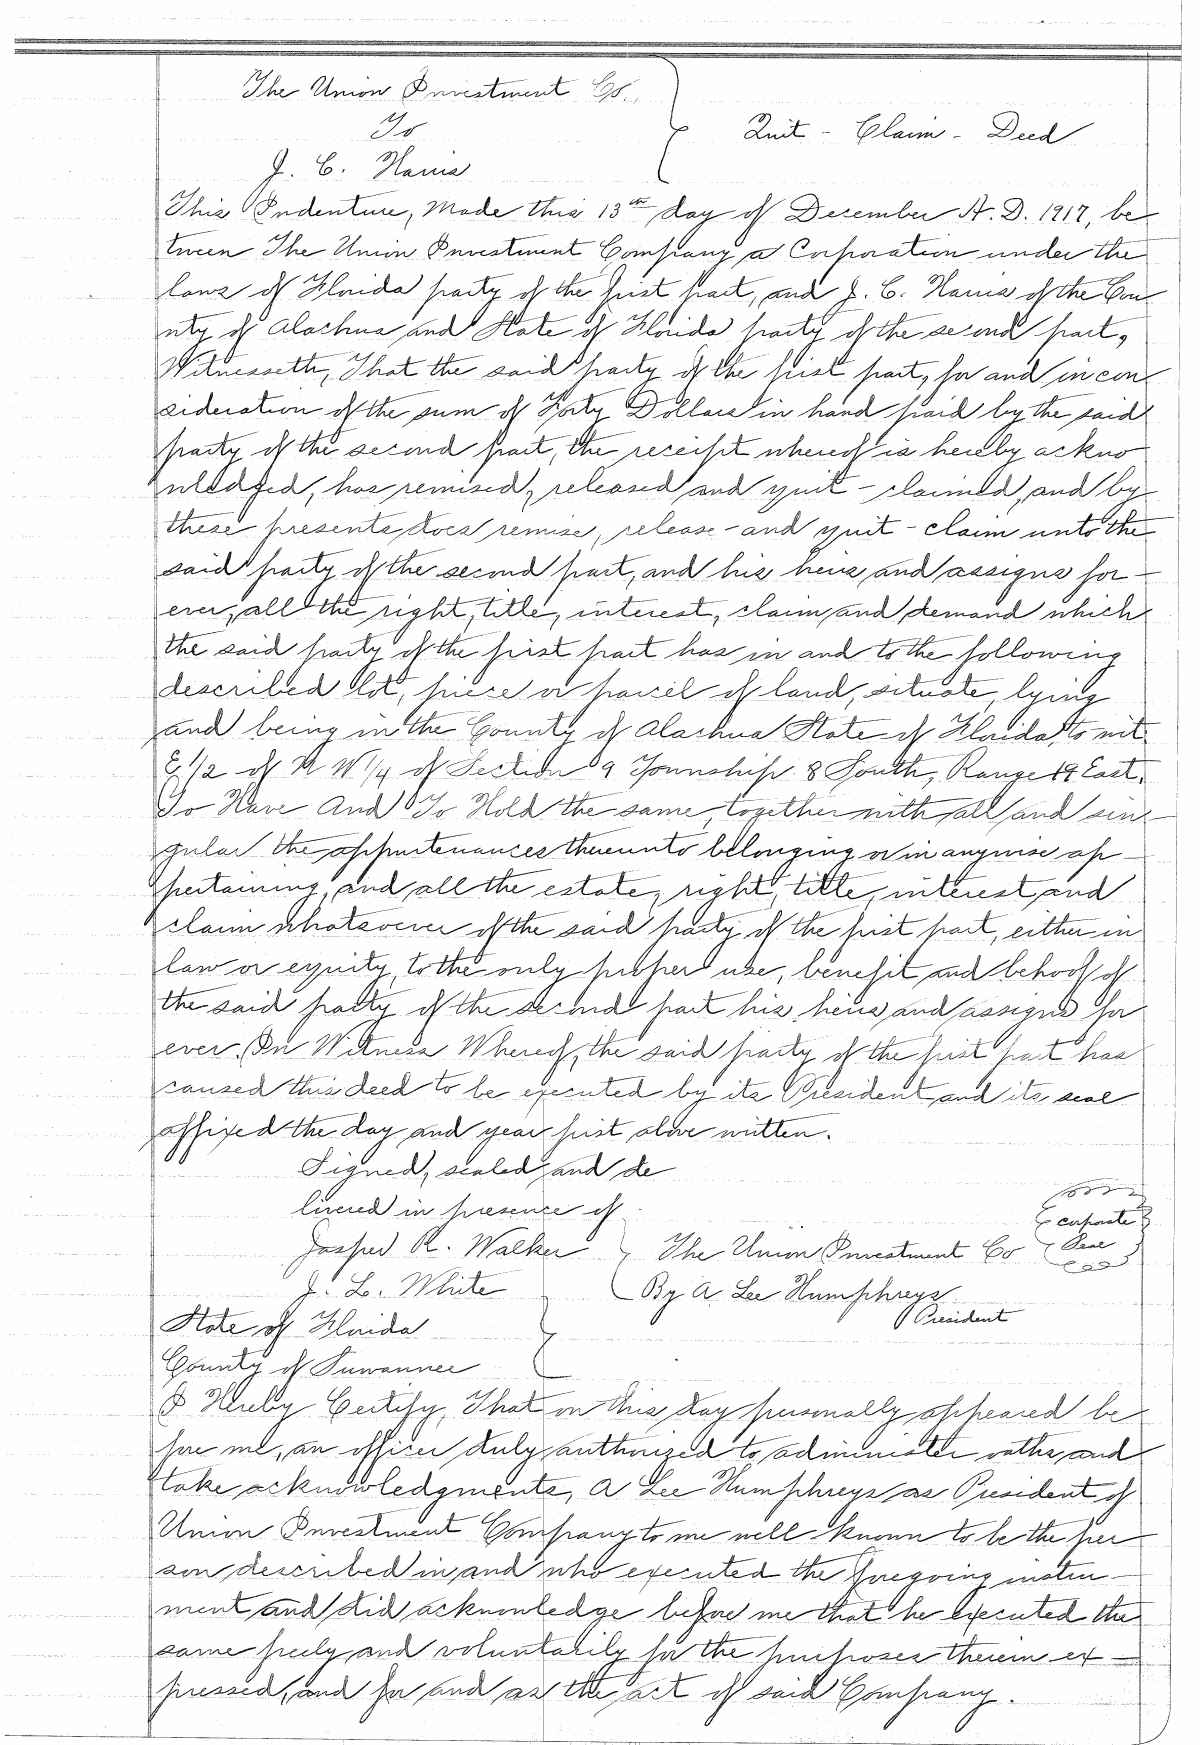 The Union Investment Co.,
To
Quit - Claim - Deed
J. C. Harris
This Indenture, Made this 13th day of December A. D. 1917, be
tween The Union Investment Company a Corporation under the
laws of Florida party of the first part, and J. C. Harris of the Cou
nty of Alachua and State of Florida party of the second part,
Witnesseth, That the said party of the first part, for and in con
sideration of the sum of Forty Dollars in hand paid by the said
party of the second part, the receipt whereof is hereby ackno
wledged, has remised, released and quit - claimed, and by
these presents does remise, release and quit - claim unto the
said party of the second part, and his heirs and assigns for -
ever, all the right, title, interest, claim and demand which
the said party of the first part has in and to the following
described lot, piece or parcel of land, situate, lying
and being in the County of Alachua State of Florida, to wit:
E 1/2 of N W 1/4 of Section 9 Township 8 South, Range 19 East.
To Have And To Hold the same, together with all and sin -
gular the appurtenances thereunto belonging or in anywise ap -
pertaining, and all the estate, right, title, interest and
claim whatsoever of the said party of the first part, either in
law or equity, to the only proper use, benefit and behoof of
the said party of the second part his heirs and assigns for
ever. In Witness Whereof, the said party of the first part has
caused this deed to be executed by its President and its seal
affixed the day and year first above written.
Signed, sealed and de
livered in presence of
corporate
Jasper R. Walker The Union Investment Co Seal
J. L. White By A. Lee Humphreys
President
State of Florida
County of Suwannee
I Hereby Certify, That on this day personally appeared be
fore me, an officer duly authorized to administer oaths and
take acknowledgments, A Lee Humphreys as President of
Union Investment Company to me well known to be the per
son described in and who executed the foregoing instru -
ment and did acknowledge before me that he executed the
same freely and voluntarily for the purposes therein ex -
pressed, and for and as the act of said Company.